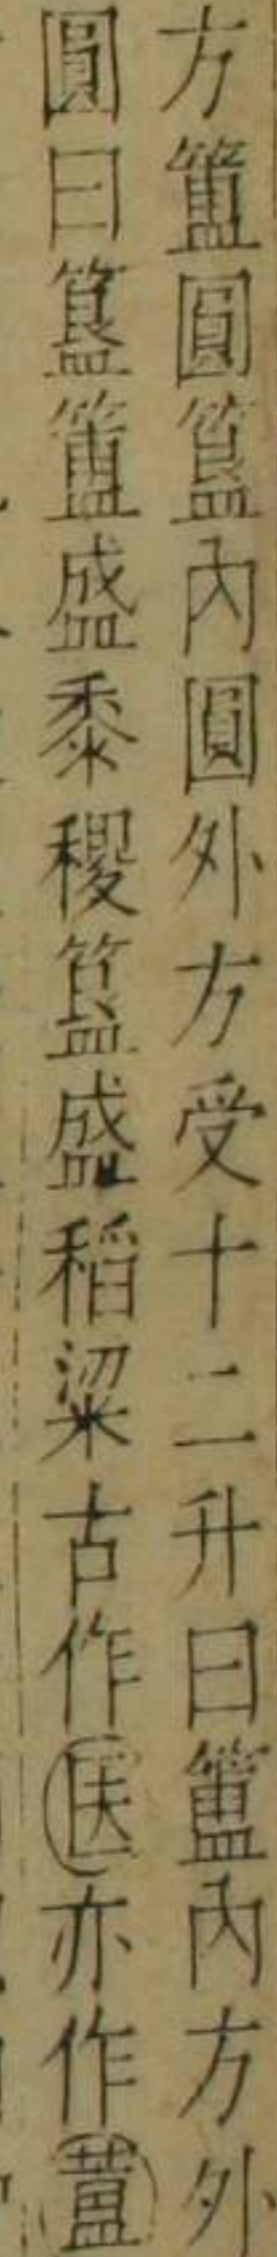 方簠圓簋內圓外方受十二升曰簠內方外
圓曰簋簠盛黍稷簋盛稻粱古作医亦作